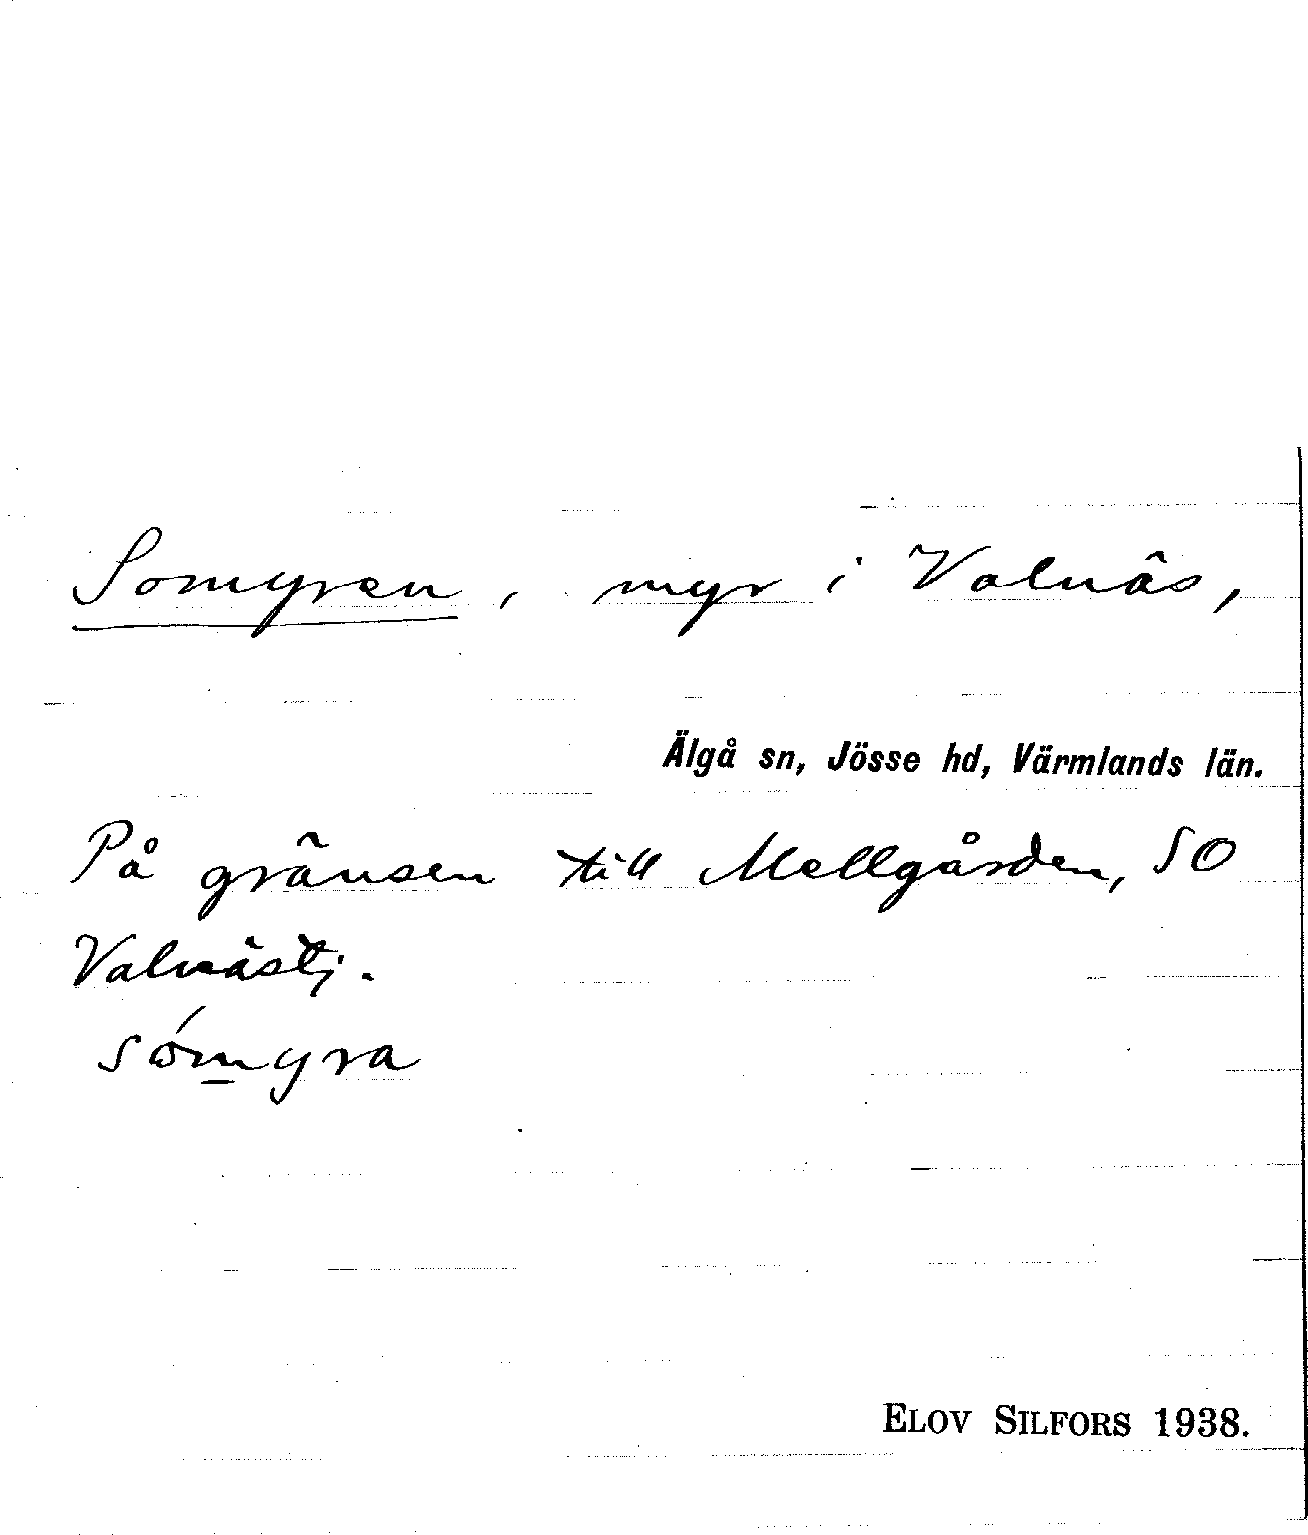 Somyren, myr i Valnäs,
Älgå sn, Jösse hd, Värmlands län.
På gränsen till Mellgården, SO
Valnästj.
sómyra
ELOV SILFORS 1938.